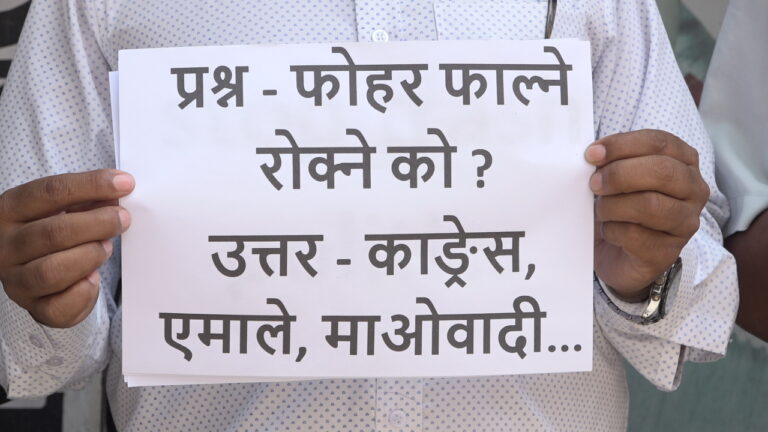 प्रश्न - फोहर फाल्ने
रोक्ने को ?
उत्तर - काङ्रेस,
एमाले, माओवादी...